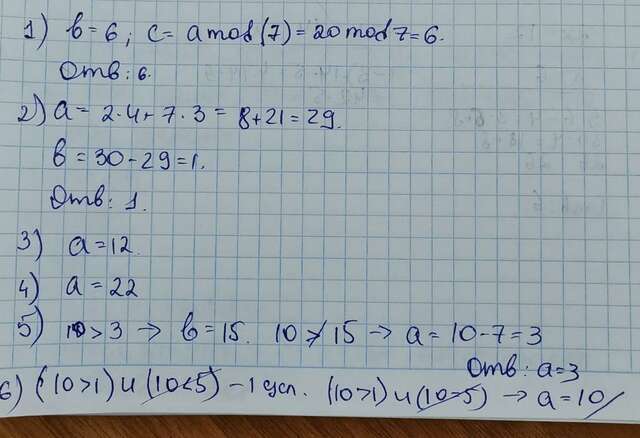 1) b = 6; c = a mod (7) = 20 mod 7 = 6.
Отв: 6.
2) a = 2·4 + 7·3 = 8+21 = 29.
b = 30 - 29 = 1.
Отв: 1.
3) a = 12.
4) a = 22
5) 10 > 3 → b = 15. 10 ≯ 15 → a = 10 - 7 = 3
Отв: a = 3
6) (10>1) и (10<5) - 1 усл. (10>1) и (10=5) → a = 10/